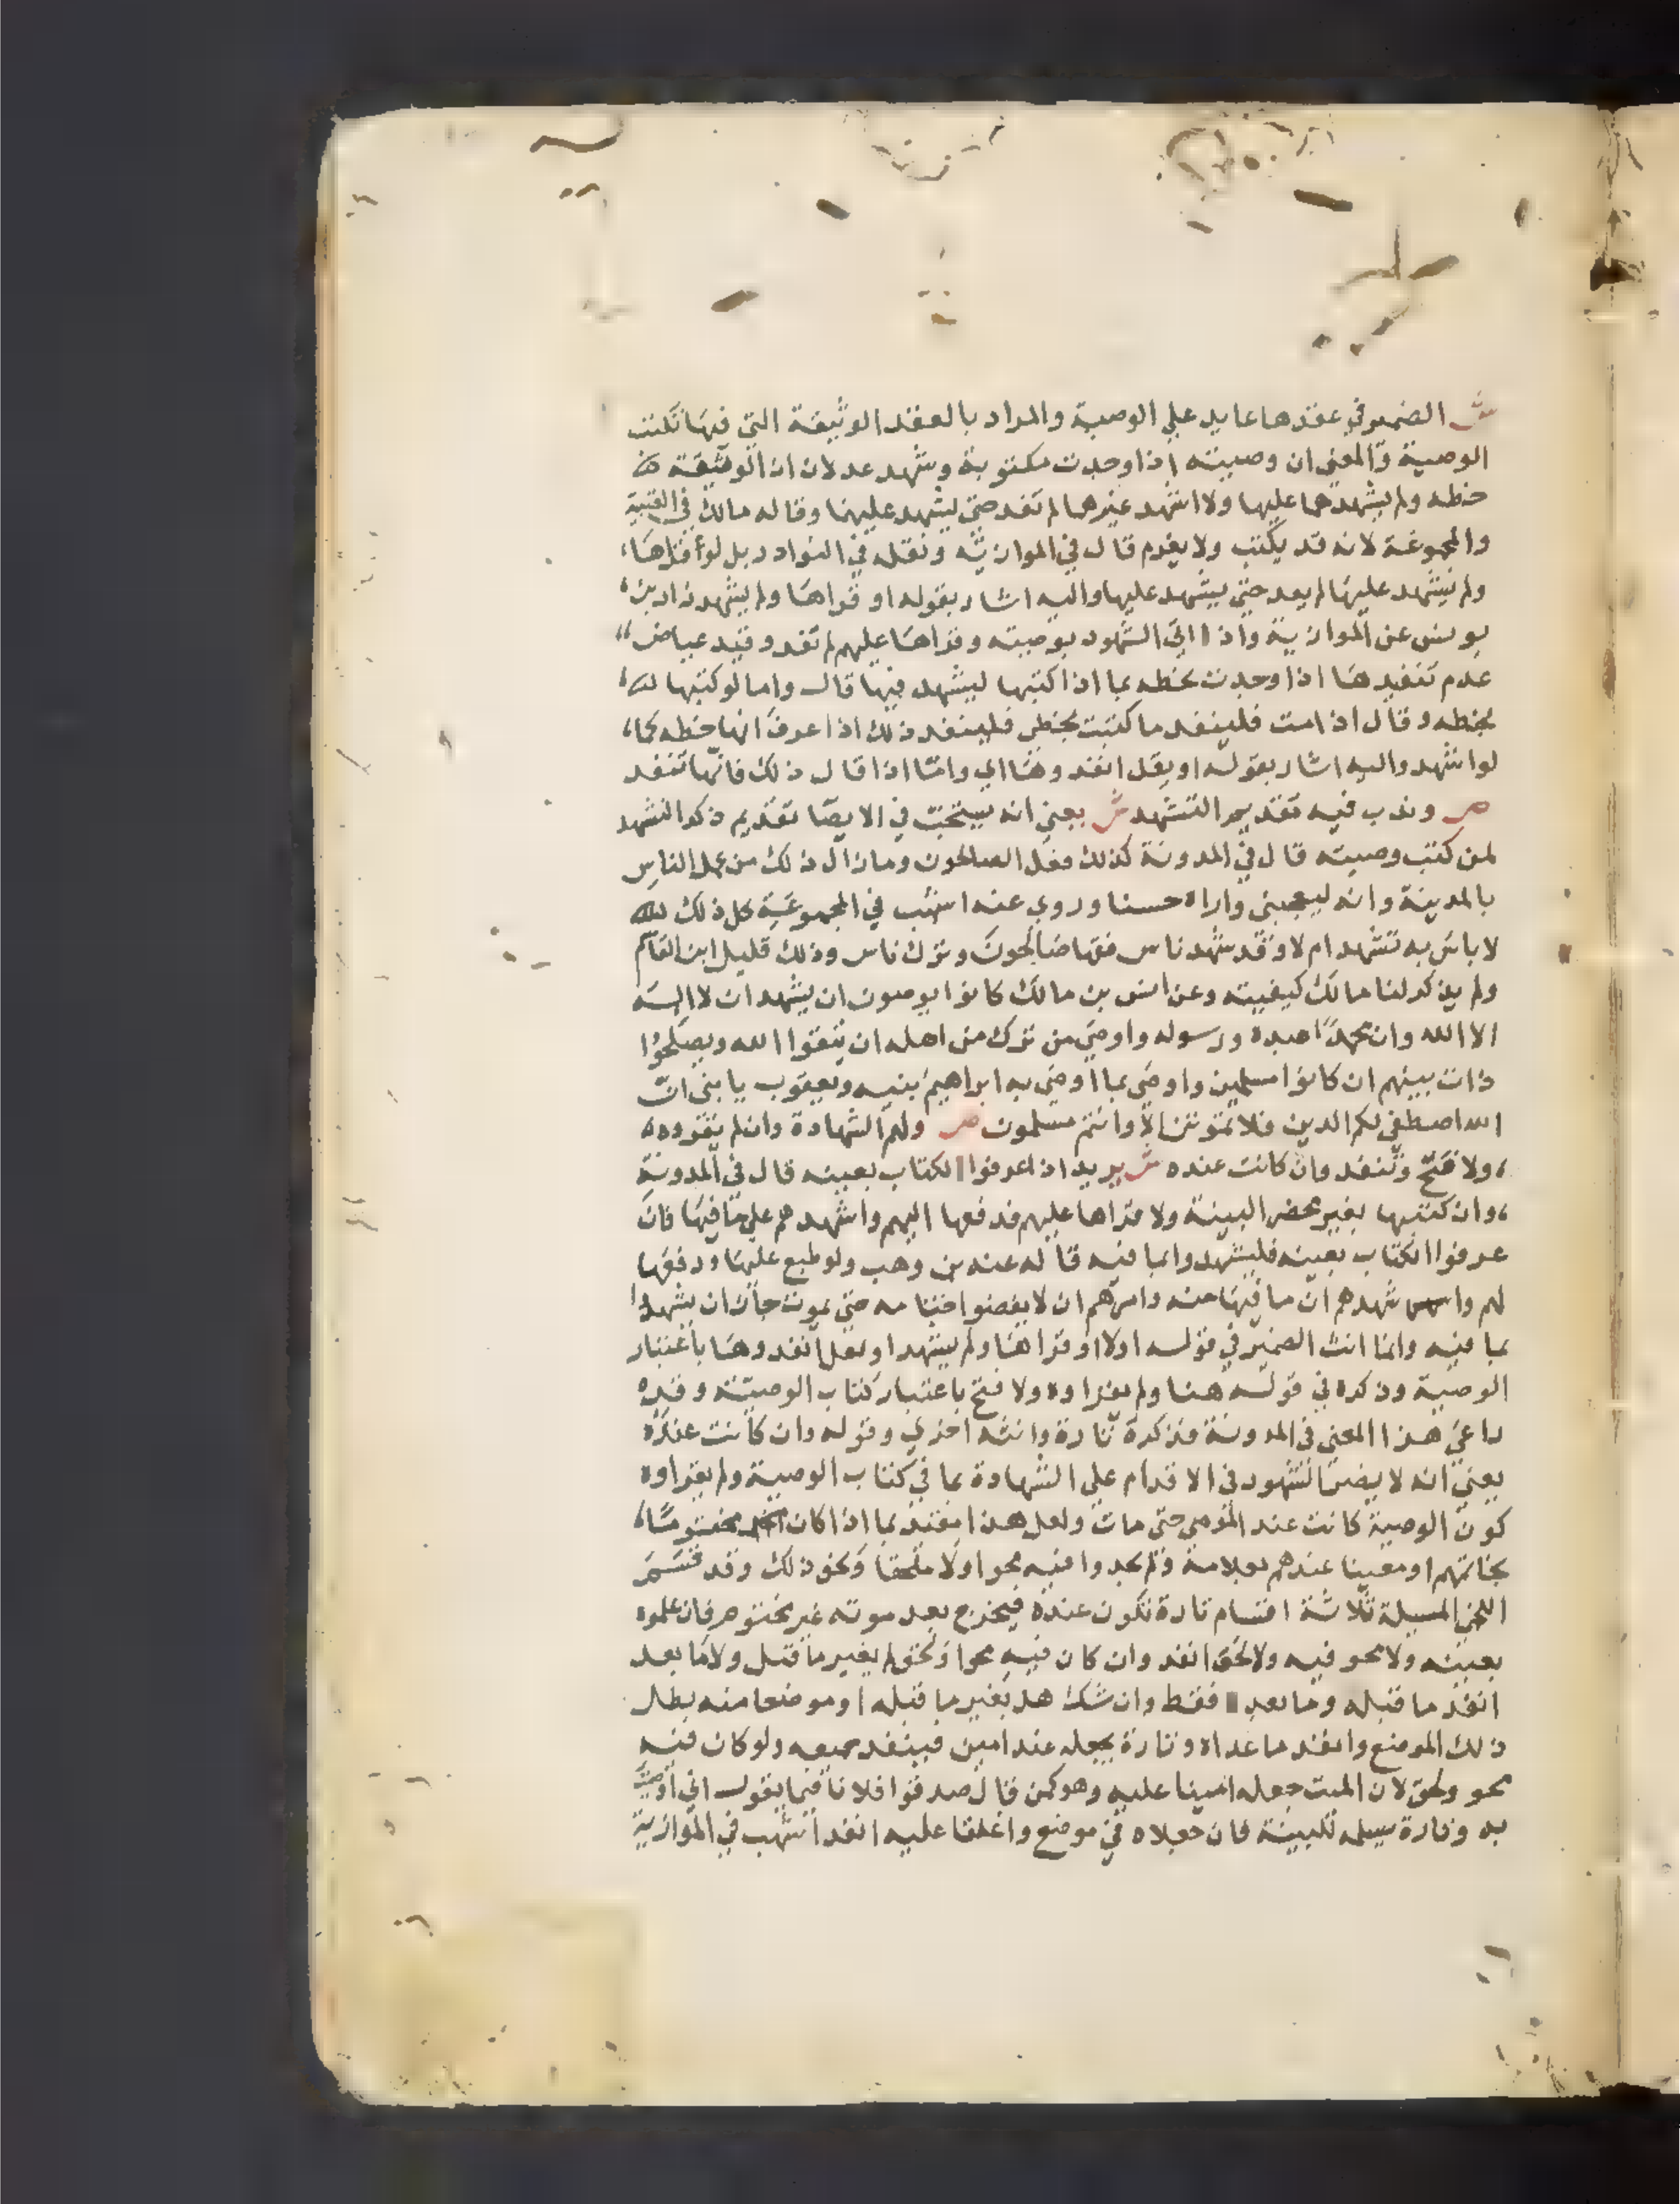 ش الضمير في عقدها عايد علي الوصية والمراد بالعقد الوثيقة التي فيها تكتب
الوصية والمعني ان وصيته اذا وجدت مكتوبة وشهد عدلان ان الوثيقة
خطه ولم يشهدهما عليها ولا اشهد غيرهما لم تنفد حتي يشهد عليها وقاله مالك في العتبية
والمجموعة لانه قد يكتب ولا يعزم قال في الموازية ونقله في النوادر بل لو أقراها
ولم يشهد عليها لم يعد حتي يشهد عليها واليه اشار بقوله او قراها ولم يشهد زاد بن
يونس عن الموازية واذا اتي الشهود بوصيته وقراها عليهم لم تنفد وقيد عياض
عدم تنفيدها اذا وجدت بخطه بما اذا كتبها ليشهد فيها قال واما لو كتبها
بخطه وقال اذا مت فلينفد ما كتبت بخطي فلينفد ذلك اذا عرف انها خطه كما
لو اشهد واليه اشار بقوله او يقل انفدوها اي واما اذا قال ذلك فانها تنفد
ص وندب فيه تقديم التشهد ش يعني انه يستحب في الايصا تقديم ذكر التشهد
لمن كتب وصيته قال في المدونة كذلك فعل الصالحون ومازال ذلك من عمل الناس
بالمدينة وانه ليعجبني واراه حسنا وروي عنه اشهب في المجموعة كل ذلك
لا باس به تشهد ام لا وقد شهد ناس فقها صالحون وترك ناس وذلك قليل ابن القاسم
ولم يذكر لنا مالك كيفيته وعن انس بن مالك كانوا يوصون ان يشهد ان لا اله
الا الله وان محمدا عبده ورسوله واوصي من ترك من اهله ان يتقوا الله ويصلحوا
ذات بينهم ان كانوا مسلمين واوصي بما اوصي به ابراهيم بنيه ويعقوب يا بني ان
الله اصطفي لكم الدين فلا تموتن الا وانتم مسلمون ص ولهم الشهادة وان لم يقروه
ولا فتح وتنفد وان كانت عنده ش يريد اذا عرفوا الكتاب بعينه قال في المدونة
وان كتبها بغير محضر البينة ولا قراها عليهم فدفعها اليهم واشهدهم علي ما فيها فان
عرفوا الكتاب بعينه فليشهدوا بما فيه قاله عنه بن وهب ولو طبع عليها ودفعها
لهم واشهدهم ان ما فيها منه وامرهم ان لا يفضوا ختامه حتي يموت جاز ان يشهدوا
بما فيه وانما انث الضمير في قوله اولا او قراها ولم يشهد او يقل انفدوها باعتبار
الوصية وذكره في قوله هنا ولم يقراوه ولا فتح باعتبار كتاب الوصية وقد
راعي هذا المعني في المدونة فذكره تارة وانثه اخري وقوله وان كانت عنده
يعني انه لا يضر الشهود في الاقدام علي الشهادة بما في كتاب الوصية ولم يقراوه
كون الوصية كانت عند الموصي حتي مات ولعل هذا مقيد بما اذا كان مختوما
بخاتمهم او معينا عندهم بعلامة ولم يجدوا فيه محوا ولا ملحقا ونحو ذلك وقد قسم
اللخمي المسيلة ثلاثة اقسام تارة تكون عنده فيخرج بعد موته غير مختوم فان علموه
بعينه ولا محو فيه ولا لحق انفد وان كان فيه محو او لحق لم يغير ما قبل ولا ما بعد
انفد ما قبله وما بعده فقط وان شك هل يغير ما قبله او موضعا منه بطل
ذلك الموضع وانفد ما عداه وتارة يجعله عند امين فينفد جميعه ولو كان فيه
محو ولحق لان الميت جعله امينا عليه وهو كمن قال صدقوا فلانا فيما يقول اني اوصيت
به وتارة يسلمه للبينة فان جعلاه في موضع واغلقا عليه انفد اشهب في الموازية